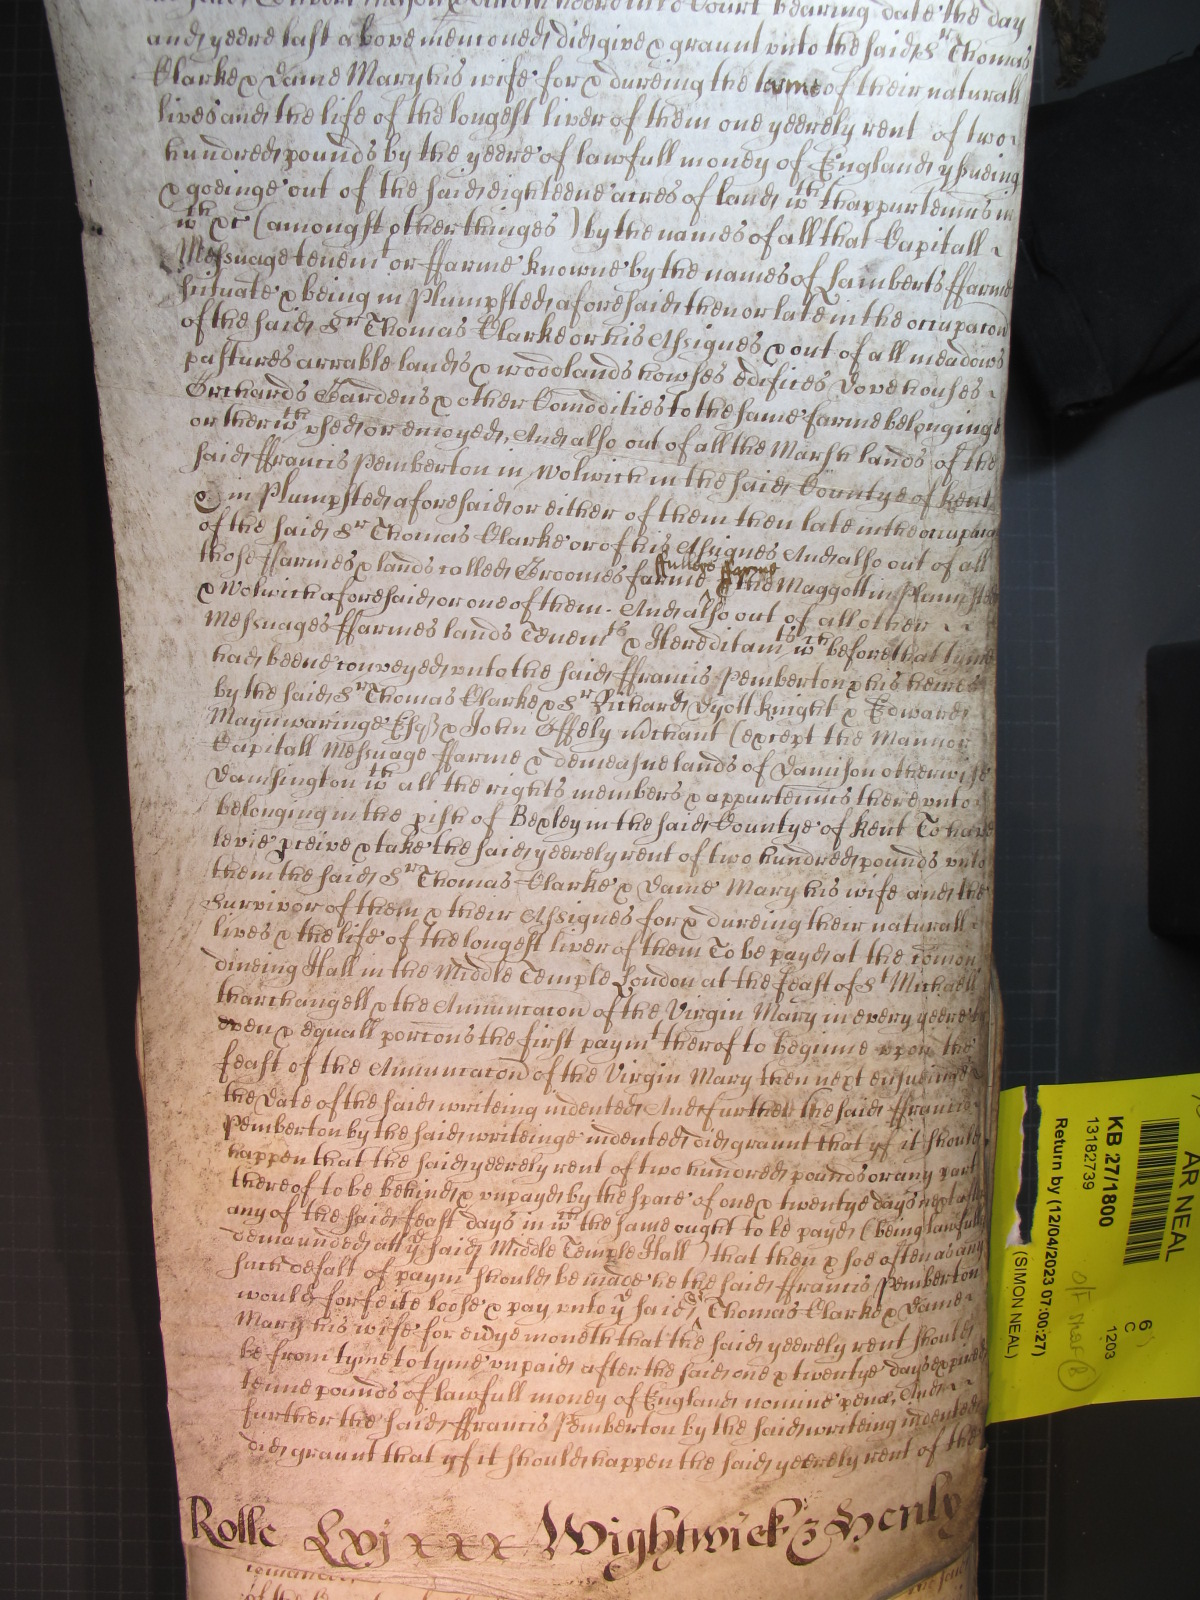 bearing date the day
and yeere last above mencioned did give & graunt vnto the said Sr Thomas
Clarke & Dame Mary his wife for & dureing the terme of their naturall
lives and the life of the longest liver of them one yeerely rent of two
hundred pounds by the yeere of lawfull money of England yssueing
& goeinge out of the said eighteene acres of land wth thappurtenncs in
wch &c (amongst other thinges) by the names of all that Capitall
Messuage tenemt or ffarme knowne by the names of Lamberts ffarme
scituate & being in Plumpsted aforesaid then or late in the occupacon
of the said Sr Thomas Clarke or his Assignes & out of all meadows
pastures arrable lands & woodlands howses edifices Dovehouses
Orchards Gardens & other Comodities to the same farme belonginge
or therewth vsed or enioyed, And also out of all the Marsh lands of the
said ffrancis Pemberton in Wolwich in the said Countye of Kent
& in Plumpsted aforesaid or either of them then late in the occupacon
of the said Sr Thomas Clarke or of his Assignes And also out of all
those ffarmes & lands called Groomes farme ffullers farme & the Maggott in Plumsted
& Wolwich aforesaid or one of them. And also out of all other
Messuages ffarmes lands Tenemts & Hereditamts wch before that tyme
had beene conveyed vnto the said ffrancis Pemberton & his heires
by the said Sr Thomas Clarke & Sr Richard Dyott Knight & Edward
Maynwaringe Esqr & John Offely mrchant (except the Mannor
Capitall Messuage ffarme & demeasne lands of Danison otherwise
Dansington wth all the rights members & appurtenncs therevnto
belonging in the pish of Bexley in the said Countye of Kent To have
levie pceive & take the said yeerely rent of two hundred pounds vnto
them the said Sr Thomas Clarke & Dame Mary his wife and the
Survivor of them & their Assignes for & dureing their naturall
lives & the life of the longest liver of them To be payd at the comon
dineing Hall in the Middle Temple London at the feast of St Michaell
tharchangell & the Annunciacon of the Virgin Mary in every yeere by
even & equall porcons the first paymt therof to beginne vpon the
feast of the Annunciacon of the Virgin Mary then next ensueinge
the Date of the said writeing indented, And further the said ffrancis
Pemberton by the said writeinge indented did graunt that yf it should
happen that the said yeerely rent of two hundred pounds or any part
thereof to be behind & vnpayd by the space of one & twentye days next after
any of the said feast days in wch the same ought to be payd (being lawfully
demaunded att ye said Middle Temple Hall) that then & soe often as any
such defalt of paymt should be made he the said ffrancis Pemberton
would forfeite loose & pay vnto ye said Sr Thomas Clarke & Dame
Mary his wife for evrye moneth that the said yeerely rent should
be from tyme to tyme vnpaid after the said one & twentye days expired
tenne pounds of lawfull money of England nomine pene, And
further the said ffrancis Pemberton by the said writeing indented
did graunt that yf it should happen the said yeerely rent of the
Rolle Lvj xxx Wightwick & Henly
AR NEAL
KB 27/1800
13182739
Return by (12/04/2023 07:00:27)
6
C
1203
(SIMON NEAL)